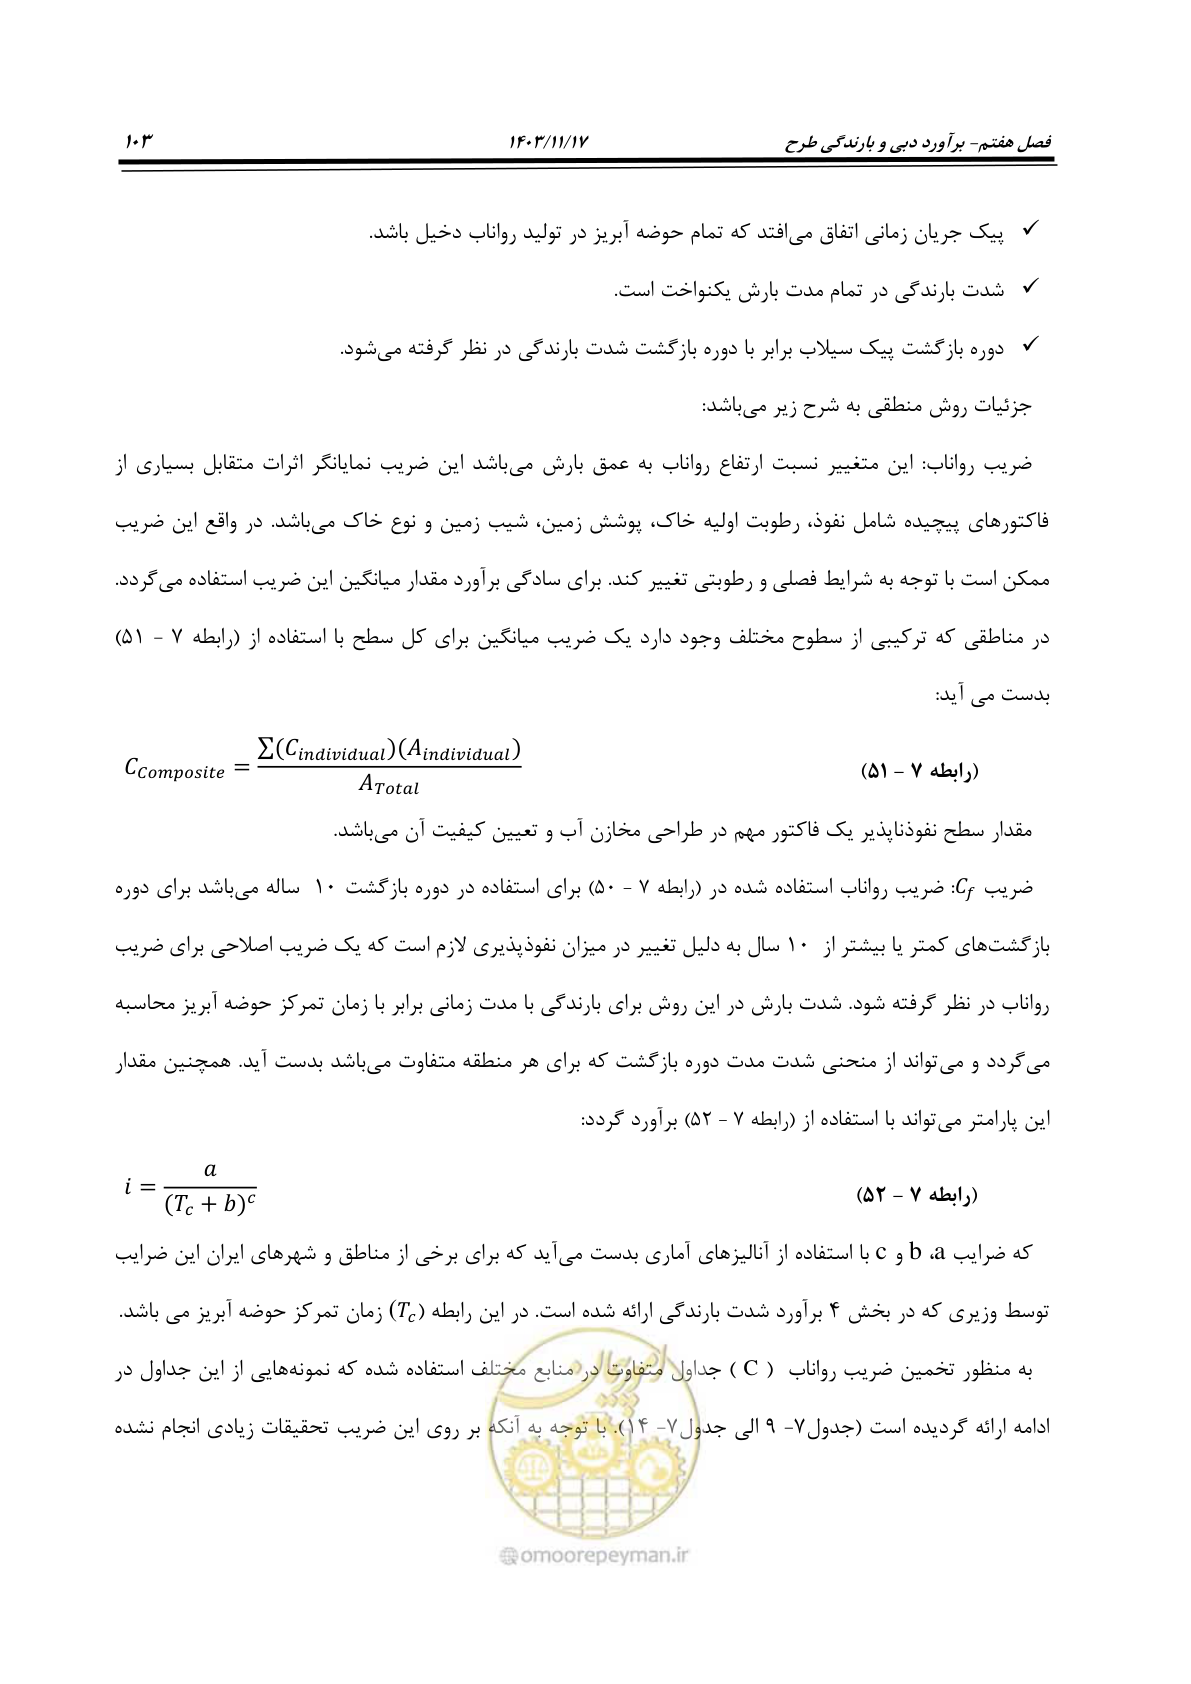 فصل هفتم- برآورد دبی و بارندگی طرح ۱۴۰۳/۱۱/۱۷ ۱۰۳
✓ پیک جریان زمانی اتفاق می‌افتد که تمام حوضه آبریز در تولید رواناب دخیل باشد.
✓ شدت بارندگی در تمام مدت بارش یکنواخت است.
✓ دوره بازگشت پیک سیلاب برابر با دوره بازگشت شدت بارندگی در نظر گرفته می‌شود.
جزئیات روش منطقی به شرح زیر می‌باشد:
ضریب رواناب: این متغییر نسبت ارتفاع رواناب به عمق بارش می‌باشد این ضریب نمایانگر اثرات متقابل بسیاری از
فاکتورهای پیچیده شامل نفوذ، رطوبت اولیه خاک، پوشش زمین، شیب زمین و نوع خاک می‌باشد. در واقع این ضریب
ممکن است با توجه به شرایط فصلی و رطوبتی تغییر کند. برای سادگی برآورد مقدار میانگین این ضریب استفاده می‌گردد.
در مناطقی که ترکیبی از سطوح مختلف وجود دارد یک ضریب میانگین برای کل سطح با استفاده از (رابطه ۷ – ۵۱)
بدست می آید:
(رابطه ۷ – ۵۱) C_Composite = ∑(C_individual)(A_individual) / A_Total
مقدار سطح نفوذناپذیر یک فاکتور مهم در طراحی مخازن آب و تعیین کیفیت آن می‌باشد.
ضریب C_f: ضریب رواناب استفاده شده در (رابطه ۷ – ۵۰) برای استفاده در دوره بازگشت ۱۰ ساله می‌باشد برای دوره
بازگشت‌های کمتر یا بیشتر از ۱۰ سال به دلیل تغییر در میزان نفوذپذیری لازم است که یک ضریب اصلاحی برای ضریب
رواناب در نظر گرفته شود. شدت بارش در این روش برای بارندگی با مدت زمانی برابر با زمان تمرکز حوضه آبریز محاسبه
می‌گردد و می‌تواند از منحنی شدت مدت دوره بازگشت که برای هر منطقه متفاوت می‌باشد بدست آید. همچنین مقدار
این پارامتر می‌تواند با استفاده از (رابطه ۷ – ۵۲) برآورد گردد:
(رابطه ۷ – ۵۲) i = a / (T_c + b)^c
که ضرایب a، b و c با استفاده از آنالیزهای آماری بدست می‌آید که برای برخی از مناطق و شهرهای ایران این ضرایب
توسط وزیری که در بخش ۴ برآورد شدت بارندگی ارائه شده است. در این رابطه (T_c) زمان تمرکز حوضه آبریز می باشد.
به منظور تخمین ضریب رواناب ( C ) جداول متفاوت در منابع مختلف استفاده شده که نمونه‌هایی از این جداول در
ادامه ارائه گردیده است (جدول۷- ۹ الی جدول۷- ۱۴). با توجه به آنکه بر روی این ضریب تحقیقات زیادی انجام نشده
امور پیمان
@omoorepeyman.ir